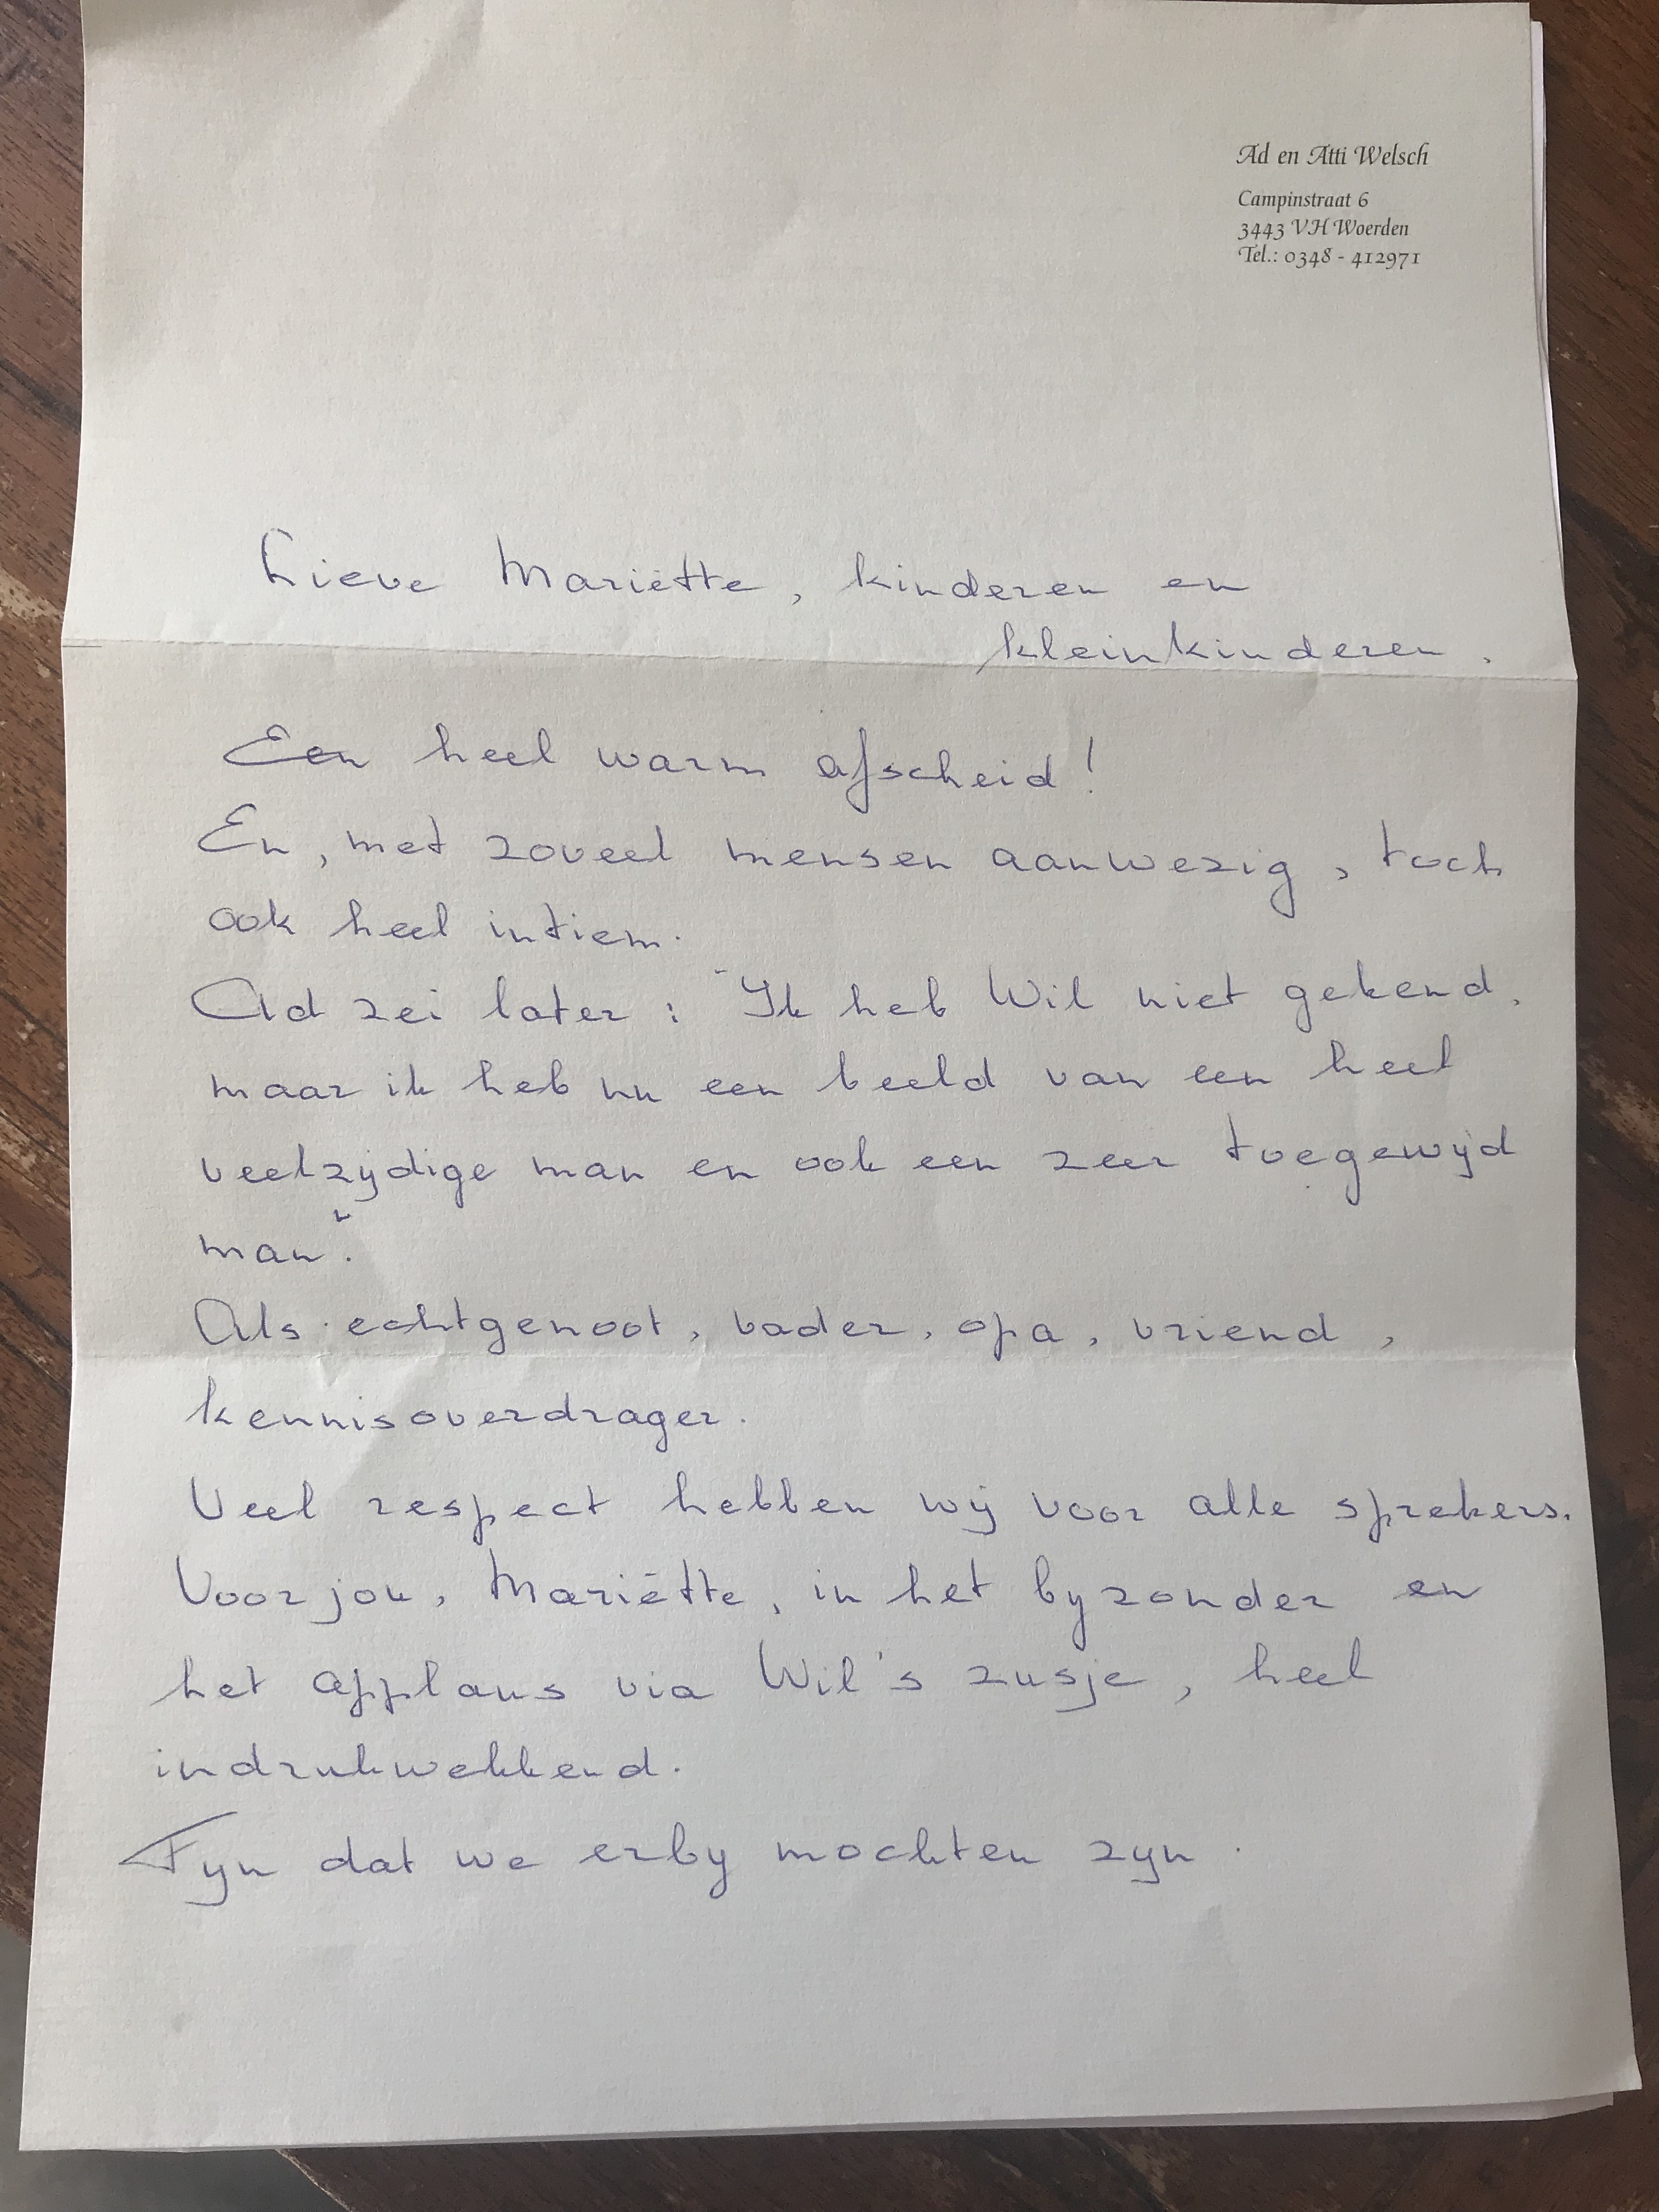 Ad en Atti Welsch
Campinstraat 6
3443 VH Woerden
Tel.: 0348 - 412971
Lieve Mariëtte, kinderen en
kleinkinderen.
Een heel warm afscheid!
En, met zoveel mensen aanwezig, toch
ook heel intiem.
Ad zei later: "Ik heb Wil niet gekend,
maar ik heb nu een beeld van een heel
veelzijdige man en ook een zeer toegewijd
man".
Als echtgenoot, vader, opa, vriend,
kennisoverdrager.
Veel respect hebben wij voor alle sprekers.
Voor jou, Mariëtte, in het byzonder en
het applaus via Wil's zusje, heel
indrukwekkend.
Fyn dat we erby mochten zyn.